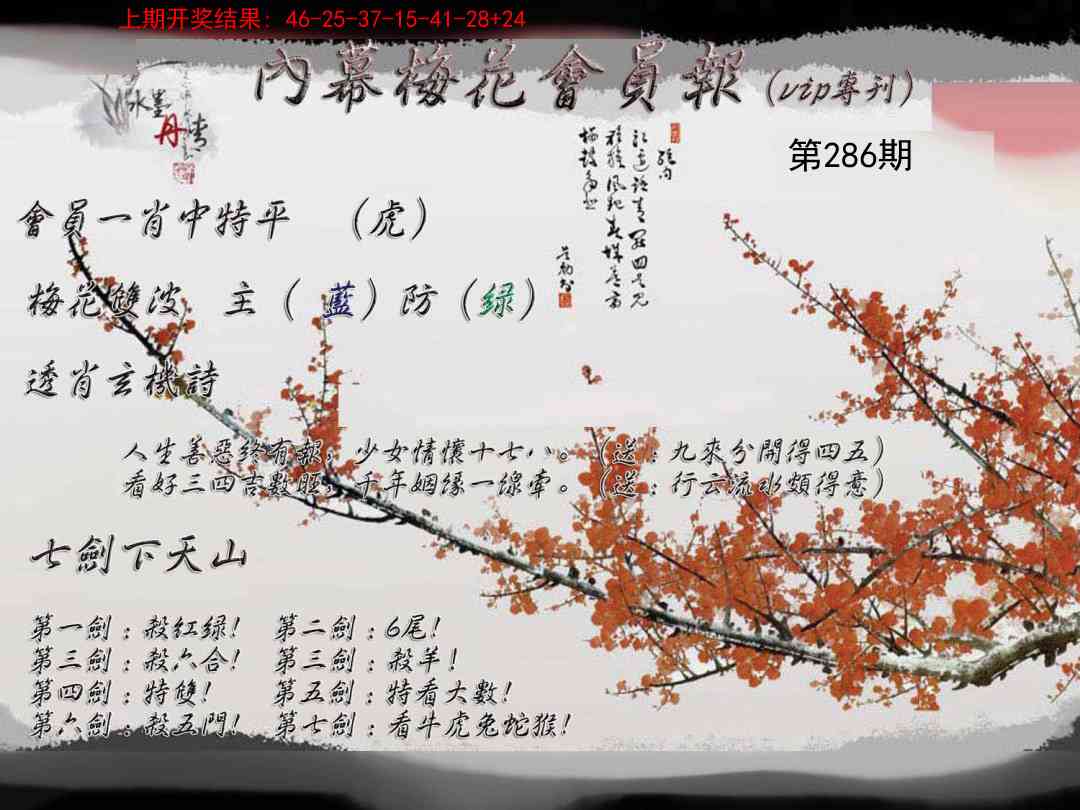 上期开奖结果: 46-25-37-15-41-28+24
內幕梅花會員報(vip專刊)
水墨
丹青
第286期
會員一肖中特平 (虎)
梅花雙波 主(藍)防(緑)
透肖玄機詩
人生善惡終有報，少女情懷十七八。(送：九來分開得四五)
看好三四吉數旺，千年姻缘一線牽。(送：行云流水頗得意)
七劍下天山
第一劍：殺紅緑! 第二劍：6尾!
第三劍：殺六合! 第三劍：殺羊!
第四劍：特雙! 第五劍：特看大數!
第六劍：殺五門! 第七劍：看牛虎兔蛇猴!